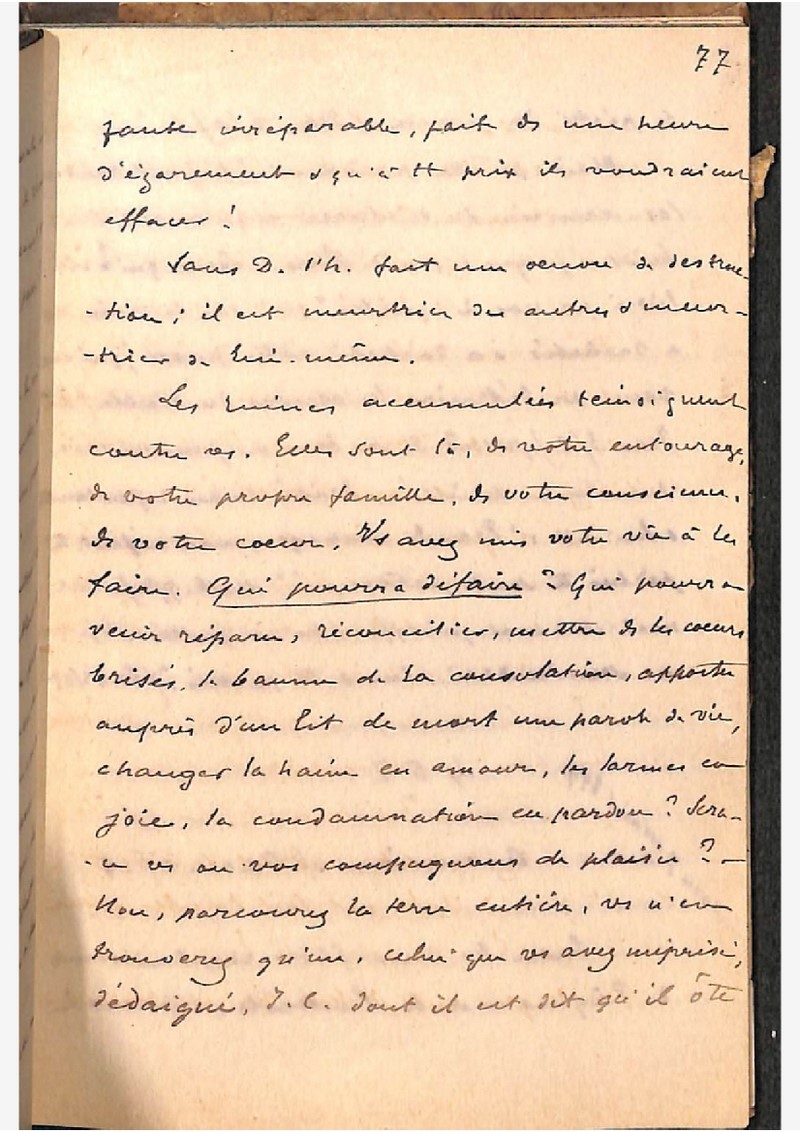 77
faute irréparable, faite ds une heure
d'égarement & qu'à tt prix ils voudraient
effacer !
Sans D. l'h. fait une oeuvre de destruc-
-tion ; il est meurtrier des autres & meur-
-trier de lui-même.
Les ruines accumulées témoignent
contre vs. Elles sont là, ds votre entourage,
ds votre propre famille, ds votre conscience,
ds votre coeur. Vs avez mis votre vie à les
faire. Qui pourra défaire ? Qui pourra
venir réparer, réconcilier, mettre ds les coeurs
brisés, le baume de la consolation, apporter
auprès d'un lit de mort une parole de vie,
changer la haine en amour, les larmes en
joie, la condamnation en pardon ? Sera-
-ce vs ou vos compagnons de plaisir ? -
Non, parcourez la terre entière, vs n'en
trouverez qu'un, celui que vs avez méprisé,
dédaigné, J. C. dont il est dit qu'il ôte